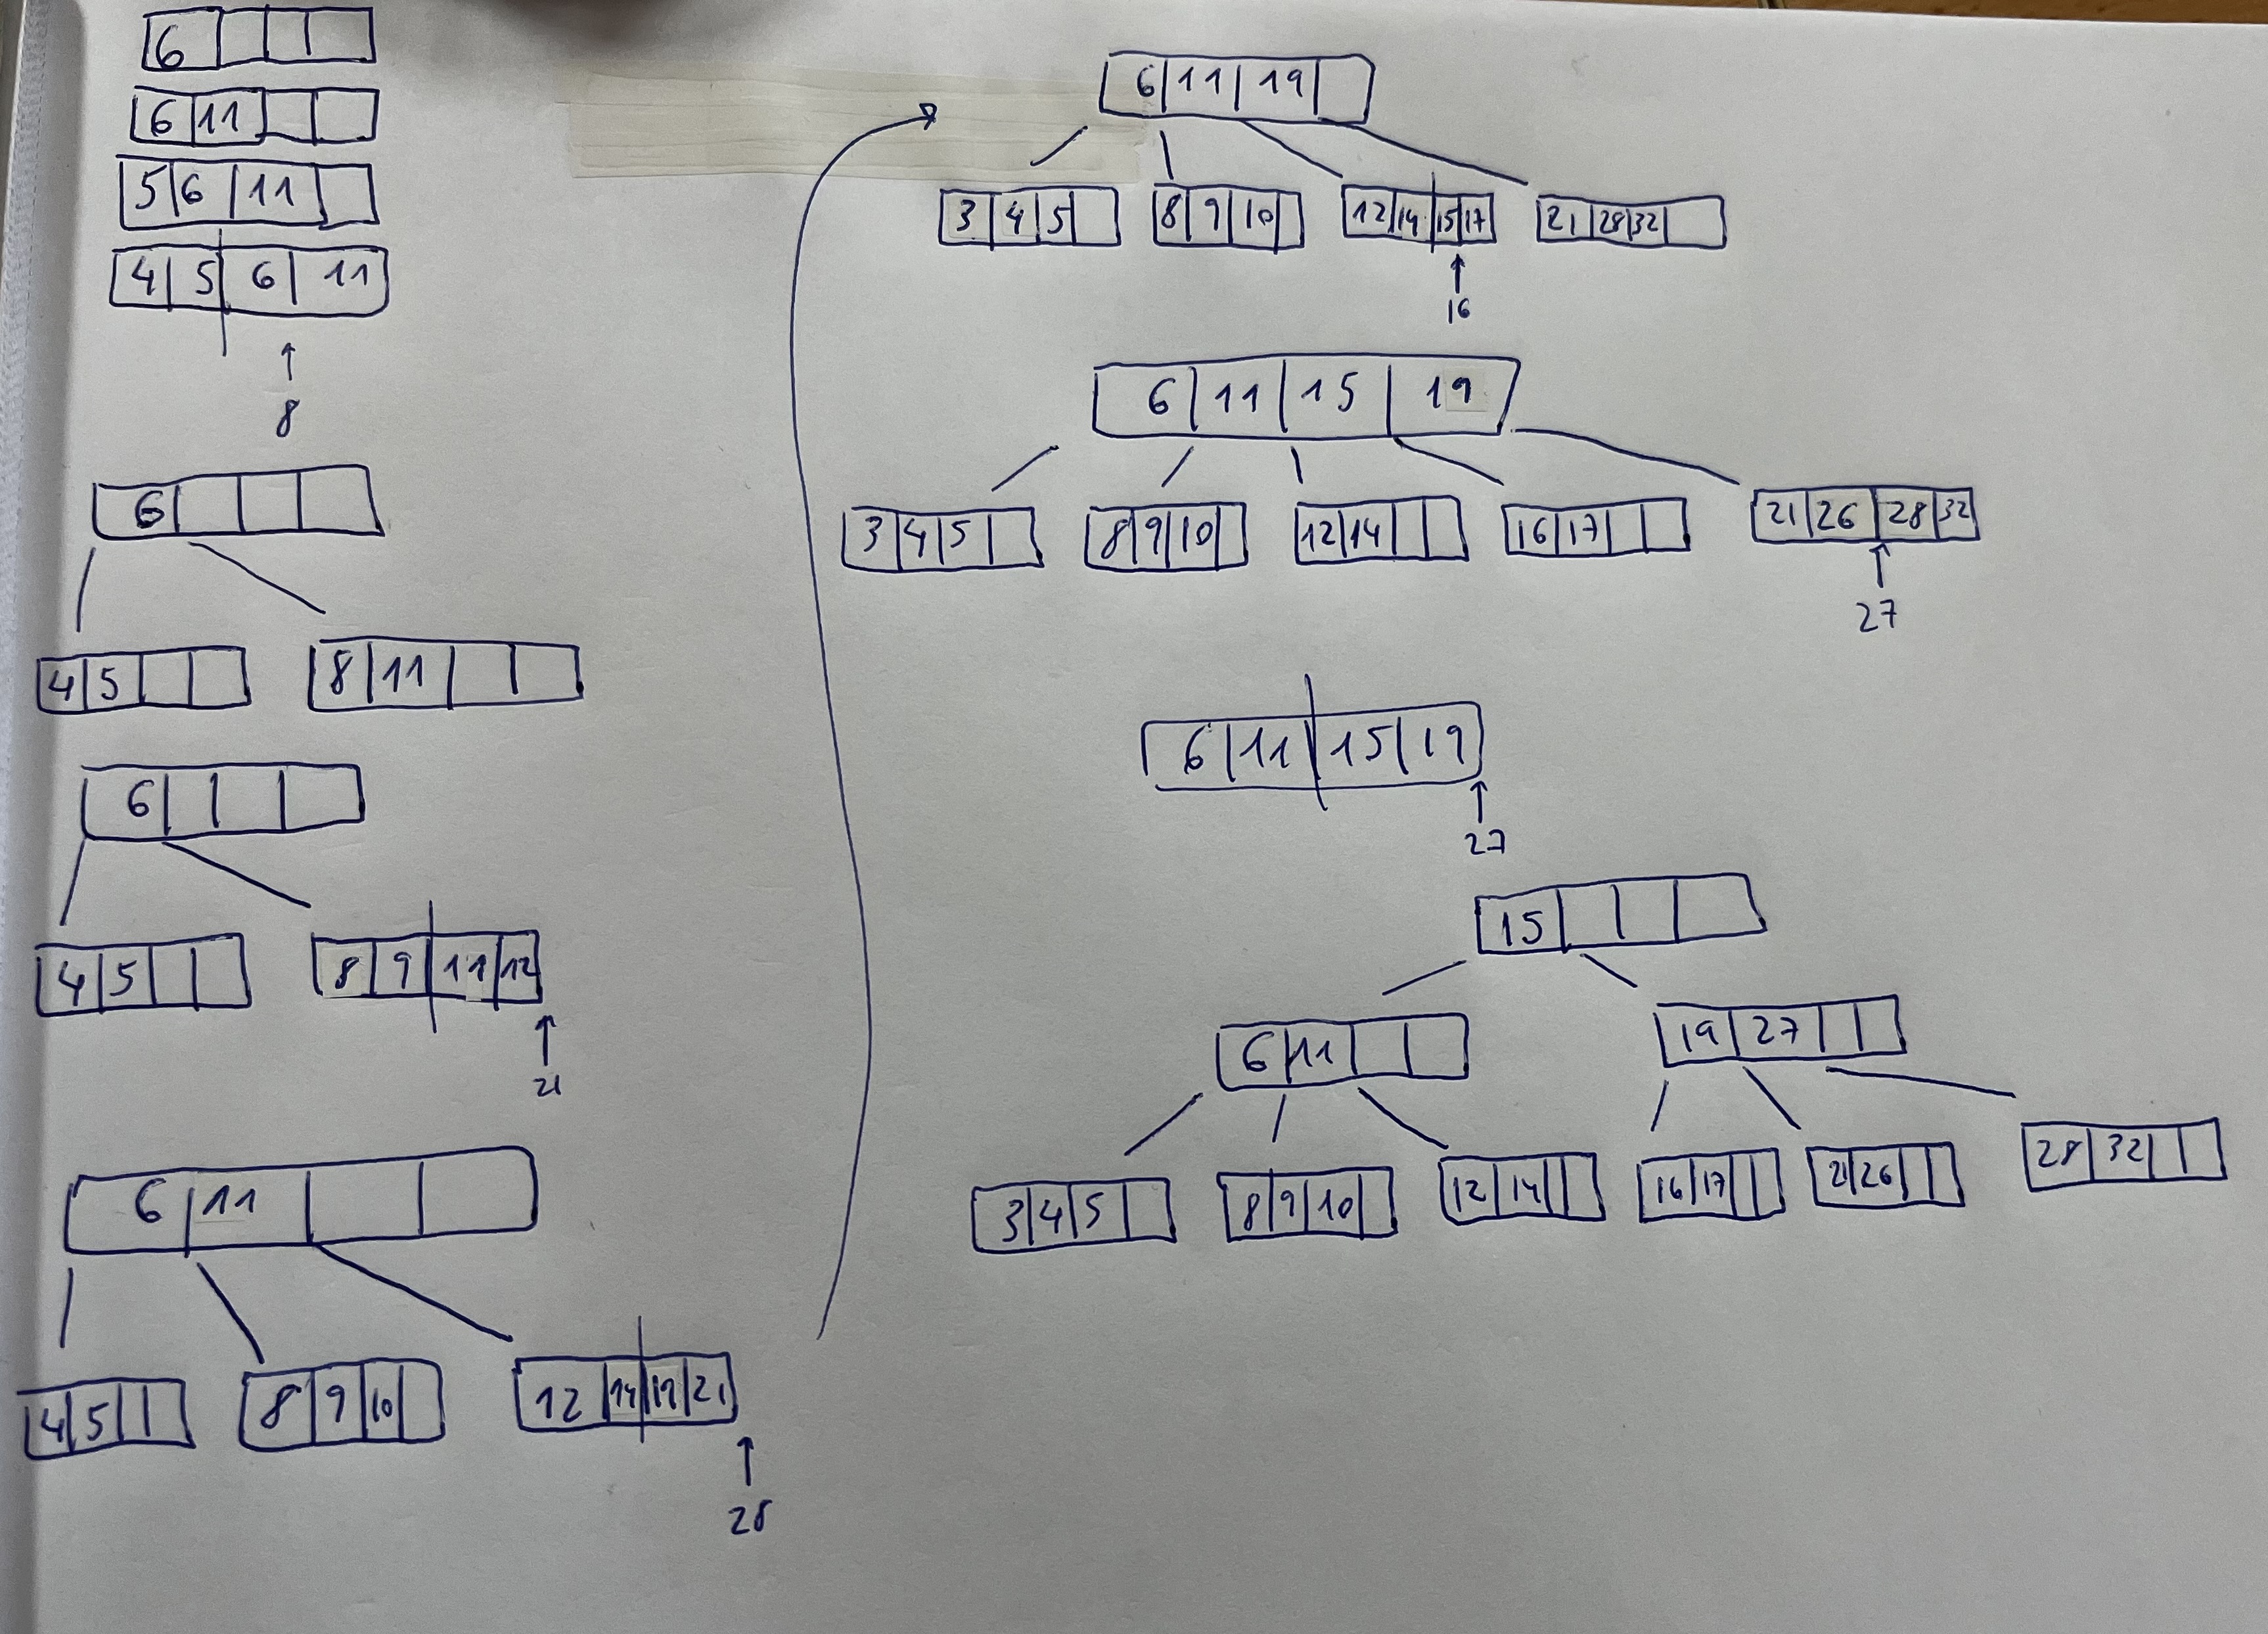 6
6 11
5 6 11
4 5 6 11
8
6
4 5
8 11
6
4 5
8 9 11 12
21
6 11
4 5
8 9 10
12 14 19 21
28
6 11 19
3 4 5
8 9 10
12 14 15 17
21 28 32
16
6 11 15 19
3 4 5
8 9 10
12 14
16 17
21 26 28 32
27
6 11 15 19
27
15
6 11
19 27
3 4 5
8 9 10
12 14
16 17
21 26
28 32